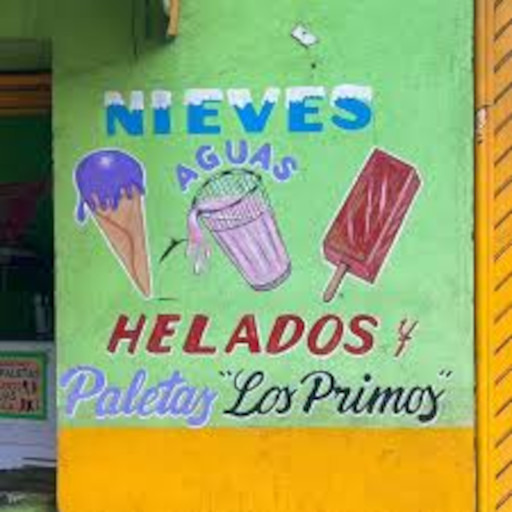 NIEVES
AGUAS
HELADOS Y
Paletas "Los Primos"
PALETAS